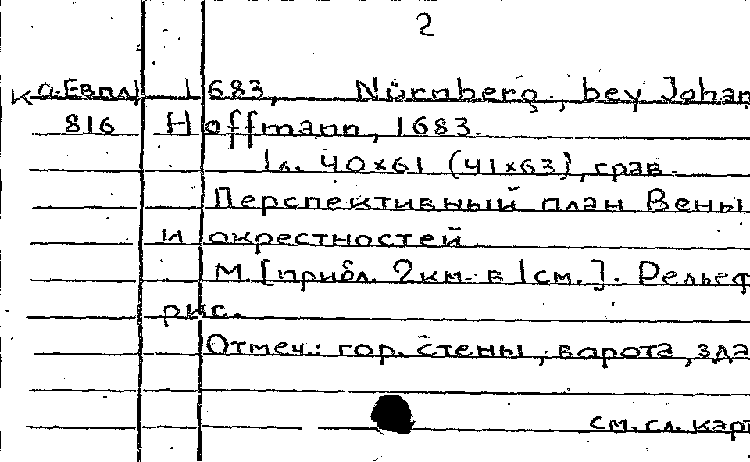 2
К О.Евпл 1683, Nürnberg, bey Johan
816 Hoffmann, 1683.
1л. 40×61 (41×63), грав.
Перспективный план Вены
и окрестностей
М. [прибл. 2км. в 1см.]. Рельеф
рис.
Отмеч.: гор. стены, ворота, зда
см. сл. карт